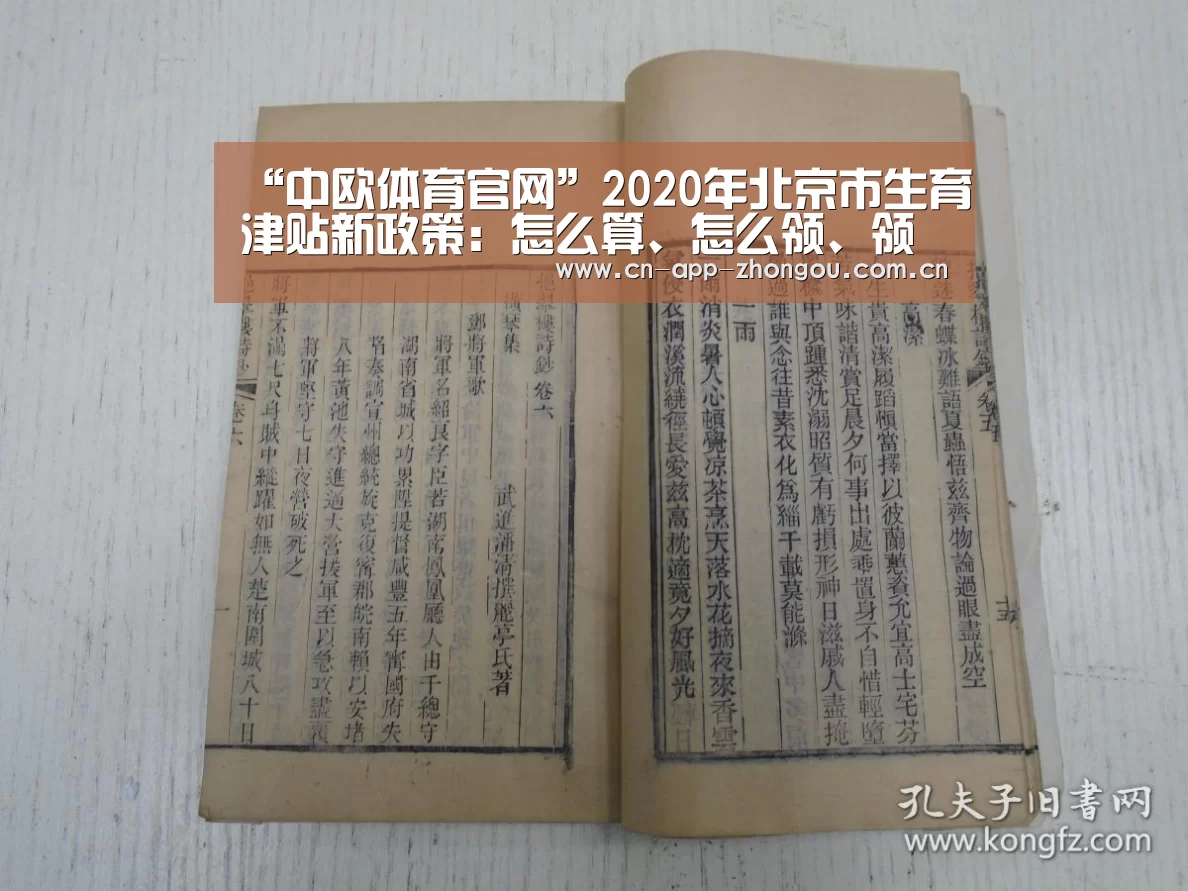 “中欧体育官网”2020年北京市生育
津贴新政策：怎么算、怎么领、领
www.cn-app-zhongou.com.cn
迷春蝶冰難語夏蟲悟玆齊物論過眼盡成空
高潔
生貴高潔履蹈愼當擇以彼蘭蕙資允宜高士宅芬
氣味諧清賞足晨夕何事出處乖置身不自惜輕墮
中頂踵悉沈溺昭質有虧損形神日滋戚人盡掩
過誰與念往昔素衣化爲緇千載莫能滌
一雨
雨消炎暑人心頓覺涼茶烹天落水花摘夜來香雲
衣潤溪流繞徑長愛兹高枕適竟夕好風光
十五
樓詩鈔卷六
集
武進潘清撰麗亭氏著
鄧將軍歌
將軍名紹良字臣若湖南鳳凰廳人由千總守
湖南省城以功累陞提督咸豐五年甯國府失
陷奏調宣州總統旋克復甯郡皖南賴以安堵
八年黃池失守進逼大營援軍至以急攻盡
將軍堅守七日夜營破死之
將軍不滿七尺身賊中縱躍如無人楚南圍城八十日
卷六
一
孔夫子旧書网
www.kongfz.com